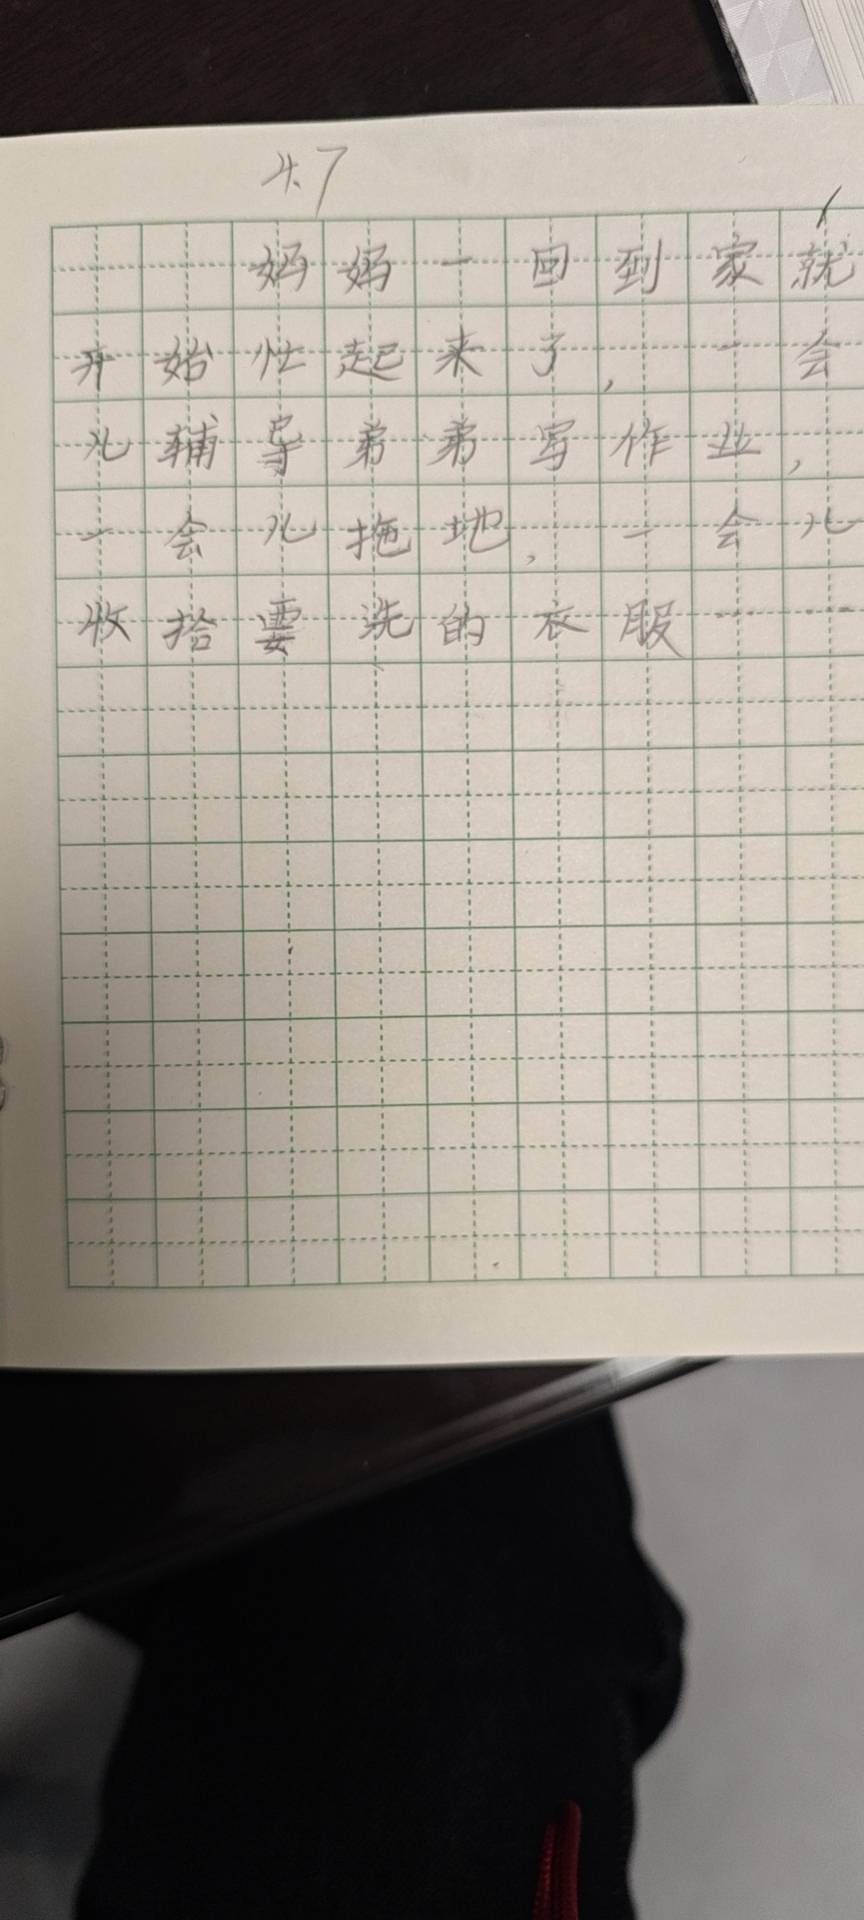 4.7
妈妈一回到家就
开始忙起来了，一会
儿辅导弟弟写作业，
一会儿拖地，一会儿
收拾要洗的衣服……